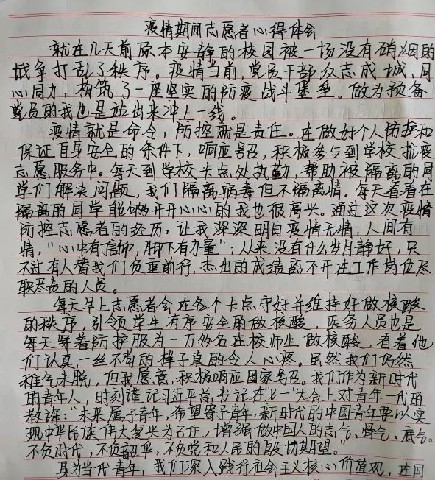 疫情期间志愿者心得体会
就在几天前原本安静的校园被一场没有硝烟的
战争打乱了秩序。疫情当前,党员干部众志成城,同
心同力,构筑了一座坚实的防疫战斗堡垒。做为预备
党员的我也是站出来冲上一线。
疫情就是命令,防控就是责任。在做好个人防护和
保证自身安全的条件下,响应号召,积极参与到学校抗疫
志愿服务中。每天到学校卡点处执勤,帮助被隔离的同
学们解决问题,我们隔离病毒但不隔离情。每天看着在
隔离的同学能够开开心心的我也很高兴。通过这次疫情
防控志愿者的经历,让我深深明白疫情无情,人间有
情,“心中有信仰,脚下有力量”;从来没有什么岁月静好,只
不过有人替我们负重前行,杰出的成绩离不开在工作岗位尽
职尽责的人员。
每天早上志愿者会在各个卡点守好并维持好做核酸
的秩序,引领学生有序安全的做核酸,医务人员也是
每天穿着防护服为一万余名在校师生做核酸,看着他
们认真一丝不苟的样子真的令人心疼。虽然我们仍然
稚气未脱,但我愿意积极响应国家号召。我们作为新时代
的青年人,时刻谨记习近平总书记在七一大会上对青年一代的
教诲:“未来属于青年,希望寄予青年,新时代的中国青年要以实
现中华民族伟大复兴为己任,增强做中国人的志气、骨气、底气,
不负时代,不负韶华,不负党和人民的殷切期望。
身为当代青年,我们深入践行社会主义核心价值观,在同